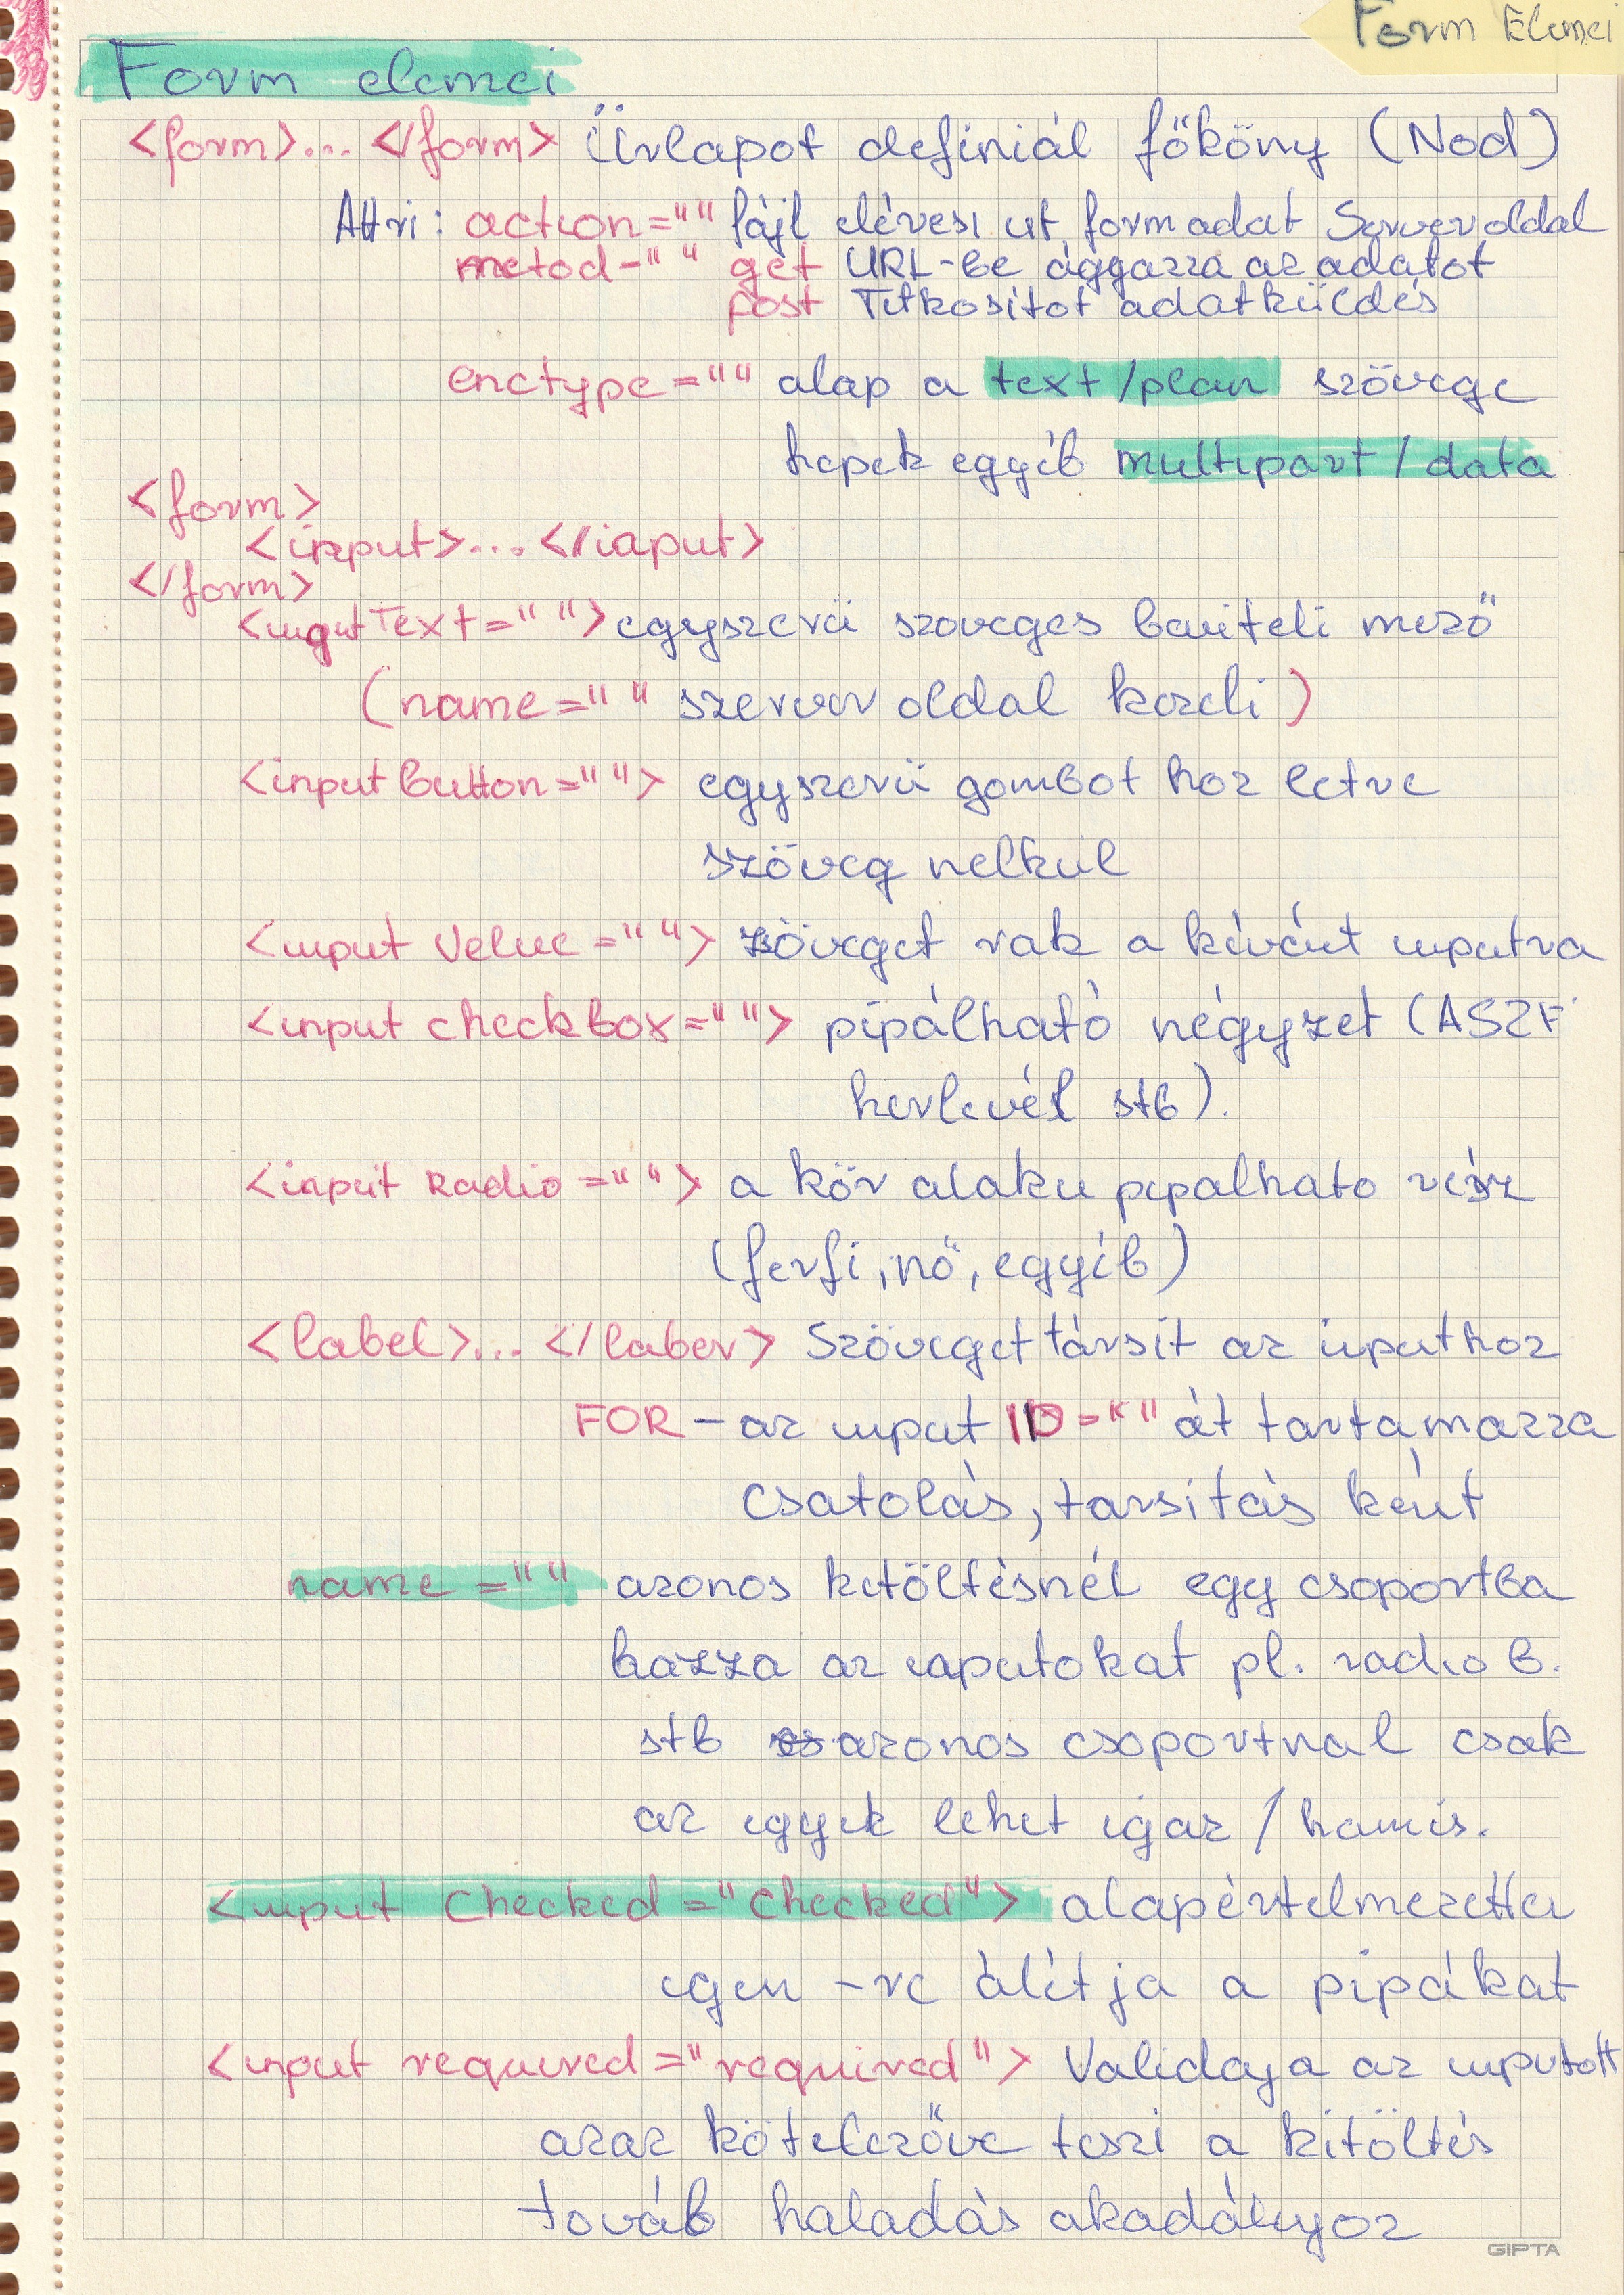 Form Elemei
Form elemei
<form>... </form> Űrlapot definiál főköny (Nod)
Attri: action="" fájl elérési út form adat Serveroldal
metod-"" get URL-be ággazza az adatot
post Titkosítot adatküldés
enctype="" alap a text/plan szövege
kepek egyéb multipart/data
<form>
<input>.... </input>
</form>
<input Text=" "> egyszerü szoveges beviteli mező
(name=" " szerver oldal kezeli)
<input button=" "> egyszerü gombot hoz letre
szöveg nelkul
<input Velue =" "> szöveget rak a kívánt inputra
<input checkbox=" "> pipálható négyzet (ASZF
hirlevél stb).
<input Radio =" "> a kör alaku pipalhato rész
(ferfi, nő, egyéb)
<label>... </laber> Szöveget társit az inputhoz
FOR - az input ID=" " át tartamazza
csatolás, tarsitás ként
name ="" azonos kitöltésnél egy csoportba
hozza az inputokat pl. radio b.
stb azonos csoportnal csak
az egyik lehet igaz / hamis.
<input Checked ="checked"> alapértelmezetten
igen -re álítja a pipákat
<input required="required"> Validaja az inputott
azaz kötelezőve teszi a kitöltés
továb haladás akadályoz
GIPTA